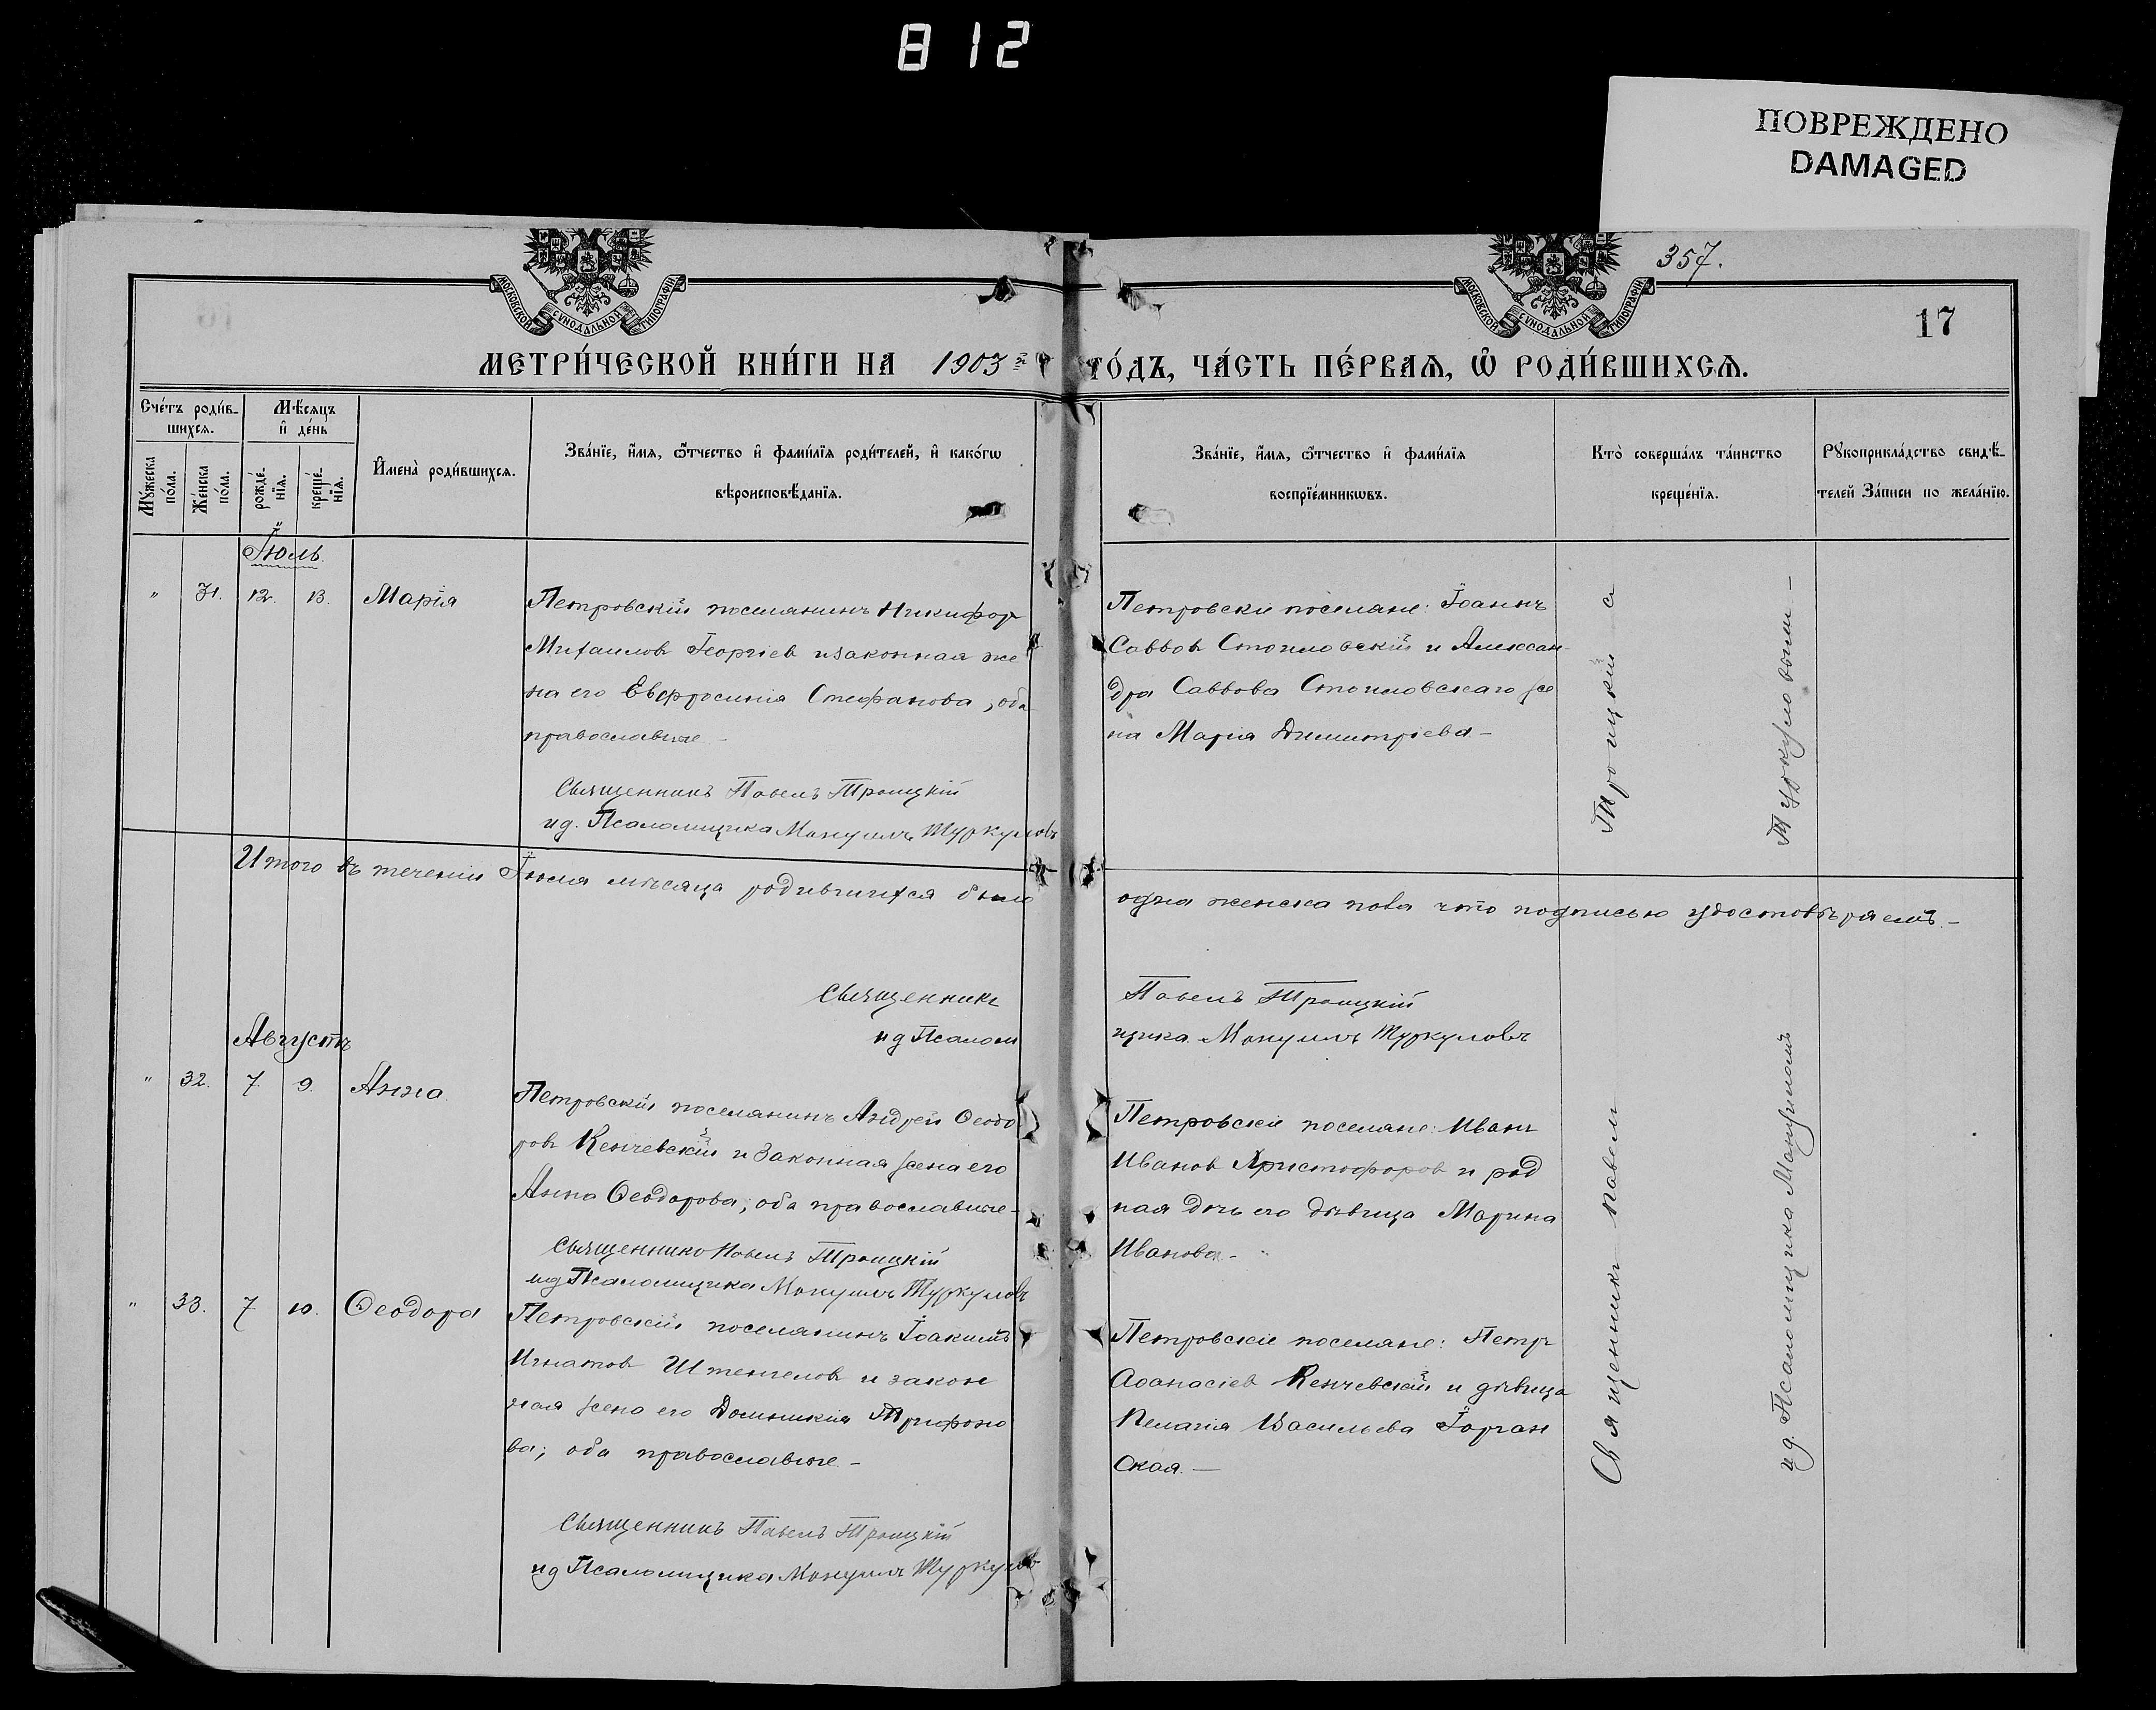 812
ПОВРЕЖДЕНО
DAMAGED
357.
17
МОСКОВСКОЙ СѴНОДАЛЬНОЙ ТИПОГРАФІИ
МОСКОВСКОЙ СѴНОДАЛЬНОЙ ТИПОГРАФІИ
МЕТРИ́ЧЕСКОЙ КНИ́ГИ НА 1903й ГО́ДЪ, ЧА́СТЬ ПЕ́РВАѦ, Ѽ РОДИ́ВШИХСѦ.
Сче́тъ роди́в-
шихсѧ.
Мꙋжеска по́ла.
Же́нска по́ла.
Мѣ́сѧцъ и҆ де́нь
рожде́-нїѧ.
креще́-нїѧ.
И҆мена̀ роди́вшихсѧ.
Зва́нїе, и҆́мѧ, ѻ҆́тчество и҆ фами́лїѧ роди́телей, и҆ како́гѡ
вѣроисповѣ́данїѧ.
Зва́нїе, и҆́мѧ, ѻ҆́тчество и҆ фами́лїѧ
воспрїе́мникѡвъ.
Кто̀ соверша́лъ та́инство
креще́нїѧ.
Рꙋкоприкла́дство свидѣ́-
телей За́писи по жела́нїю.
Іюль.
" 31. 12. 13. Марія
Петровскій поселянинъ Никифор
Михаилов Георгіев и законная же
на его Евфросинія Стефанова, оба
православные –
Священникъ Павелъ Троицкій
ид. Псаломщика Мануилъ Туркуловъ
Петровскіе поселяне: Іоаннъ
Саввов Стоиловскій и Алексан-
дра Саввова Стоиловскаго же
на Марія Димитріева –
Итого въ теченіи Іюля мѣсяца родившихся было одна женска пола что подписью удостовѣряемъ –
Священникъ Павелъ Троицкій
ид Псаломщика Мануилъ Туркуловъ
Августъ
" 32. 7. 9. Анна
Петровскій поселянинъ Андрей Ѳеодо
ровъ Кенчевскій и законная жена его
Анна Ѳеодорова; оба православные –
Священникъ Павелъ Троицкій
ид Псаломщика Мануилъ Туркуловъ
Петровскіе поселяне: Иванъ
Иванов Христофоров и род
ная дочь его дѣвица Марина
Иванова –
" 33. 7. 10. Ѳеодора
Петровскій поселянинъ Іоакимъ
Игнатов Иштенгелов и закон
ная жена его Домникія Трифоно
ва; оба православные –
Священникъ Павелъ Троицкій
ид Псаломщика Мануилъ Туркулов
Петровскіе поселяне: Петръ
Аѳанасіев Кенчевскій и дѣвица
Пелагія Васильева Іорган
ская. –
Священникъ Павелъ Троицкій с
ид. Псаломщика Мануиломъ Туркуловым –